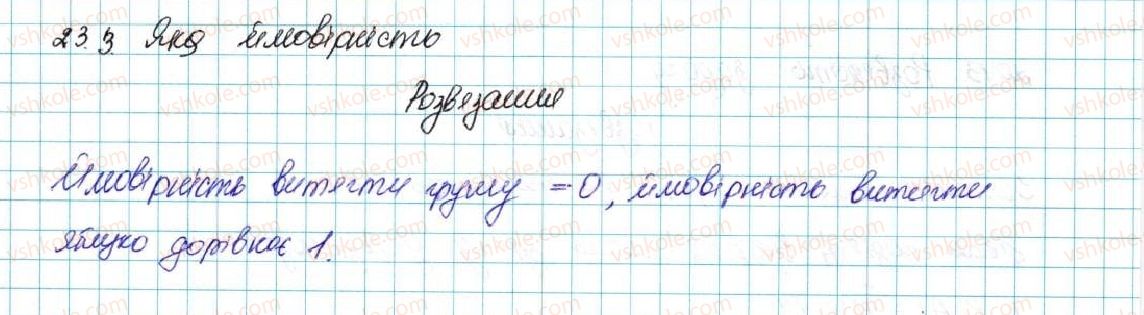 23.3. Яка ймовірність
Розвязання
Ймовірність витягти грушу = 0, ймовірність витягти
яблуко дорівнює 1.